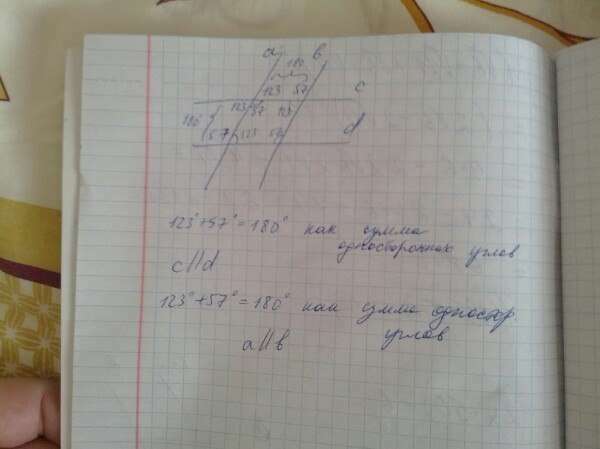 a b
180
123 57 c
123 57 123
180
57 123 57 d
123°+57°=180° как сумма
односторонних углов
c||d
123°+57°=180° как сумма одностор.
a||b углов